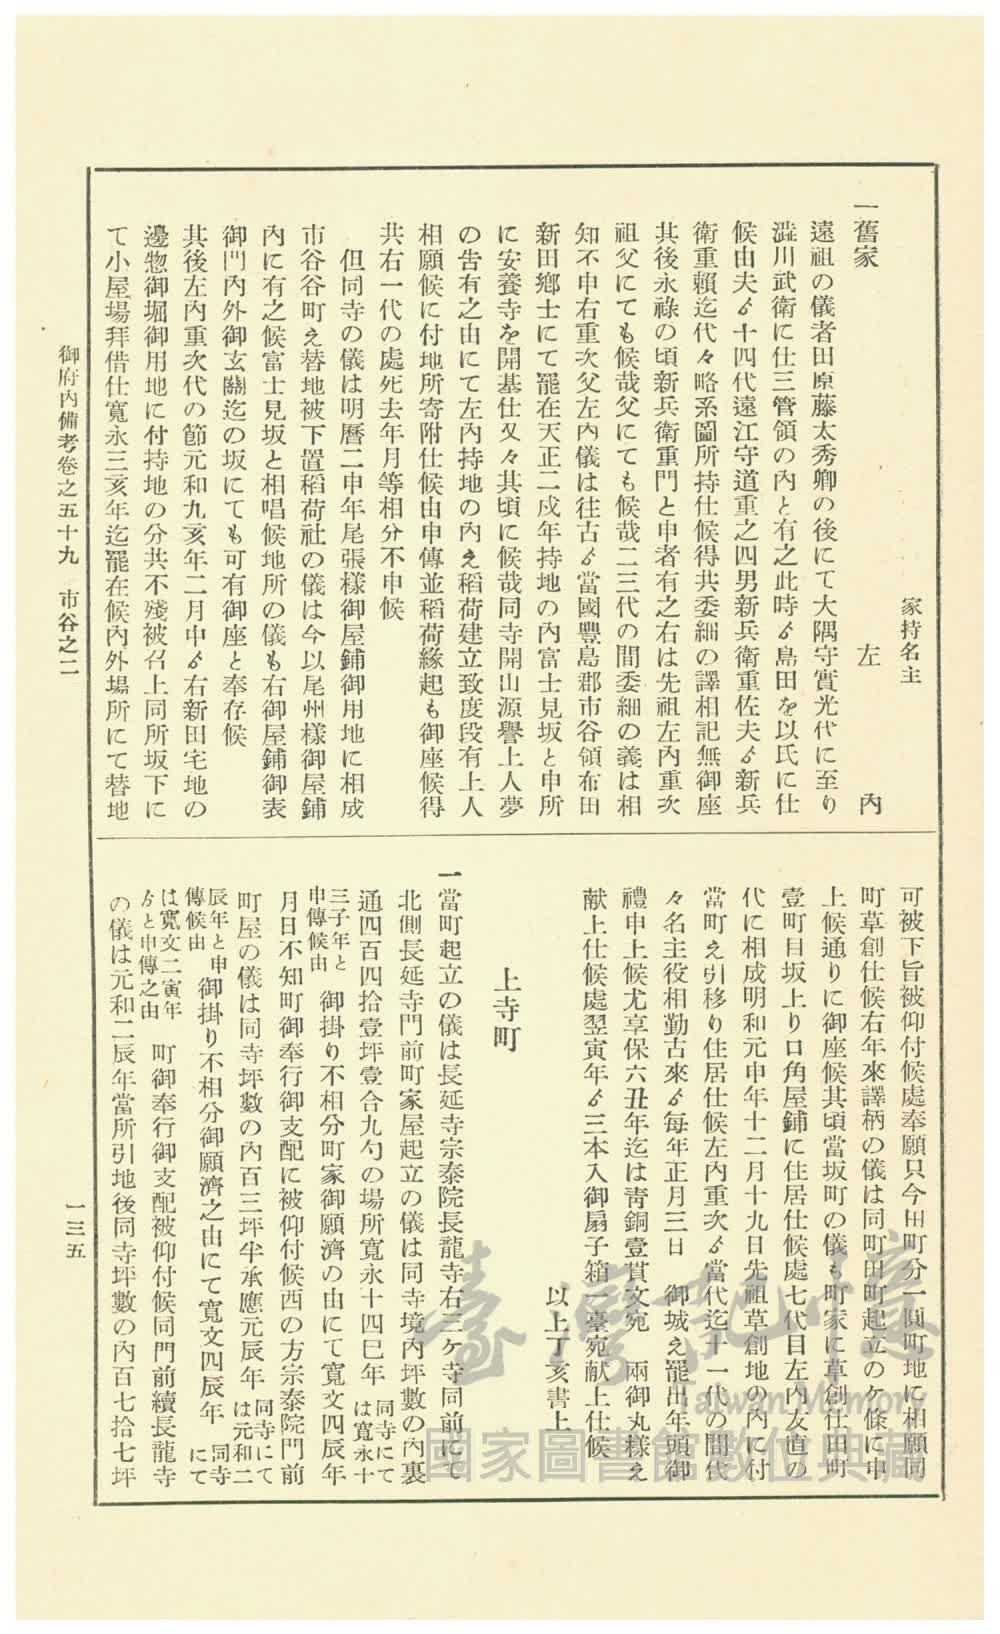 家持名主
一舊家　左　内
遠祖の儀者田原藤太秀郷の後にて大隅守實光代に至り
澁川武衛に仕三管領の内と有之此時ゟ島田を以氏に仕
候由夫ゟ十四代遠江守道重之四男新兵衛重佐夫ゟ新兵
衛重賴迄代々略系圖所持仕候得共委細の譯相記無御座
其後永祿の頃新兵衛重門と申者有之右は先祖左内重次
祖父にても候哉父にても候哉二三代の間委細の義は相
知不申右重次父左内儀は往古ゟ當國豐島郡市谷領布田
新田鄕士にて罷在天正二戌年持地の内富士見坂と申所
に安養寺を開基仕又々其頃に候哉同寺開山源譽上人夢
の告有之由にて左内持地の内え稻荷建立致度段有上人
相願候に付地所寄附仕候由申傳並稻荷緣起も御座候得
共右一代の處死去年月等相分不申候
但同寺の儀は明曆二申年尾張樣御屋鋪御用地に相成
市谷谷町え替地被下置稻荷社の儀は今以尾州樣御屋鋪
内に有之候富士見坂と相唱候地所の儀も右御屋鋪御表
御門内外御玄關迄の坂にても可有御座と奉存候
其後左内重次代の節元和九亥年二月中ゟ右新田宅地の
邊惣御堀御用地に付持地の分共不殘被召上同所坂下に
て小屋場拜借仕寬永三亥年迄罷在候内外場所にて替地
可被下旨被仰付候處奉願只今田町分一圓町地に相願同
町草創仕候右年來譯柄の儀は同町田町起立のケ條に申
上候通りに御座候其頃當坂町の儀も町家に草創仕田町
壹町目坂上り口角屋鋪に住居仕候處七代目左内友直の
代に相成明和元申年十二月十九日先祖草創地の内に付
當町え引移り住居仕候左内重次ゟ當代迄十一代の間代
々名主役相勤古來ゟ每年正月三日　御城え罷出年頭御
禮申上候尤享保六丑年迄は靑銅壹貫文宛　兩御丸樣え
献上仕候處翌寅年ゟ三本入御扇子箱一臺宛献上仕候
以上丁亥書上
上寺町
一當町起立の儀は長延寺宗泰院長龍寺右三ケ寺同前にて
北側長延寺門前町家屋起立の儀は同寺境内坪數の内裏
通四百四拾壹坪壹合九勺の場所寬永十四巳年 同寺にては寬永十
三子年と申傳候由 御掛り不相分町家御願濟の由にて寬文四辰年
月日不知町御奉行御支配に被仰付候西の方宗泰院門前
町屋の儀は同寺坪數の内百三坪半承應元辰年 同寺にては元和二
辰年と申傳候由 御掛り不相分御願濟之由にて寬文四辰年 同寺にて
は寬文二寅年ゟと申傳之由 町御奉行御支配被仰付候同門前續長龍寺
の儀は元和二辰年當所引地後同寺坪數の内百七拾七坪
御府内備考卷之五十九　市谷之二
一三五
臺灣記憶
Taiwan Memory
國家圖書館數位典藏